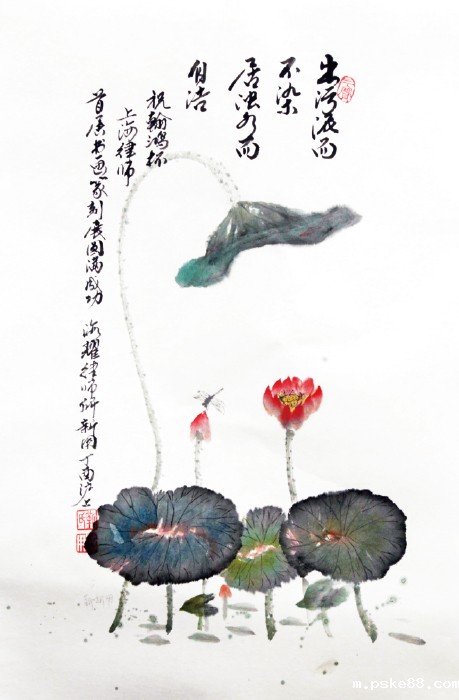 出污泥而
不染
居浊水而
自洁
祝翰鸿杯
上海律师
首届书画篆刻展圆满成功 海耀律师 新 丁酉沪上
m.pske88.com